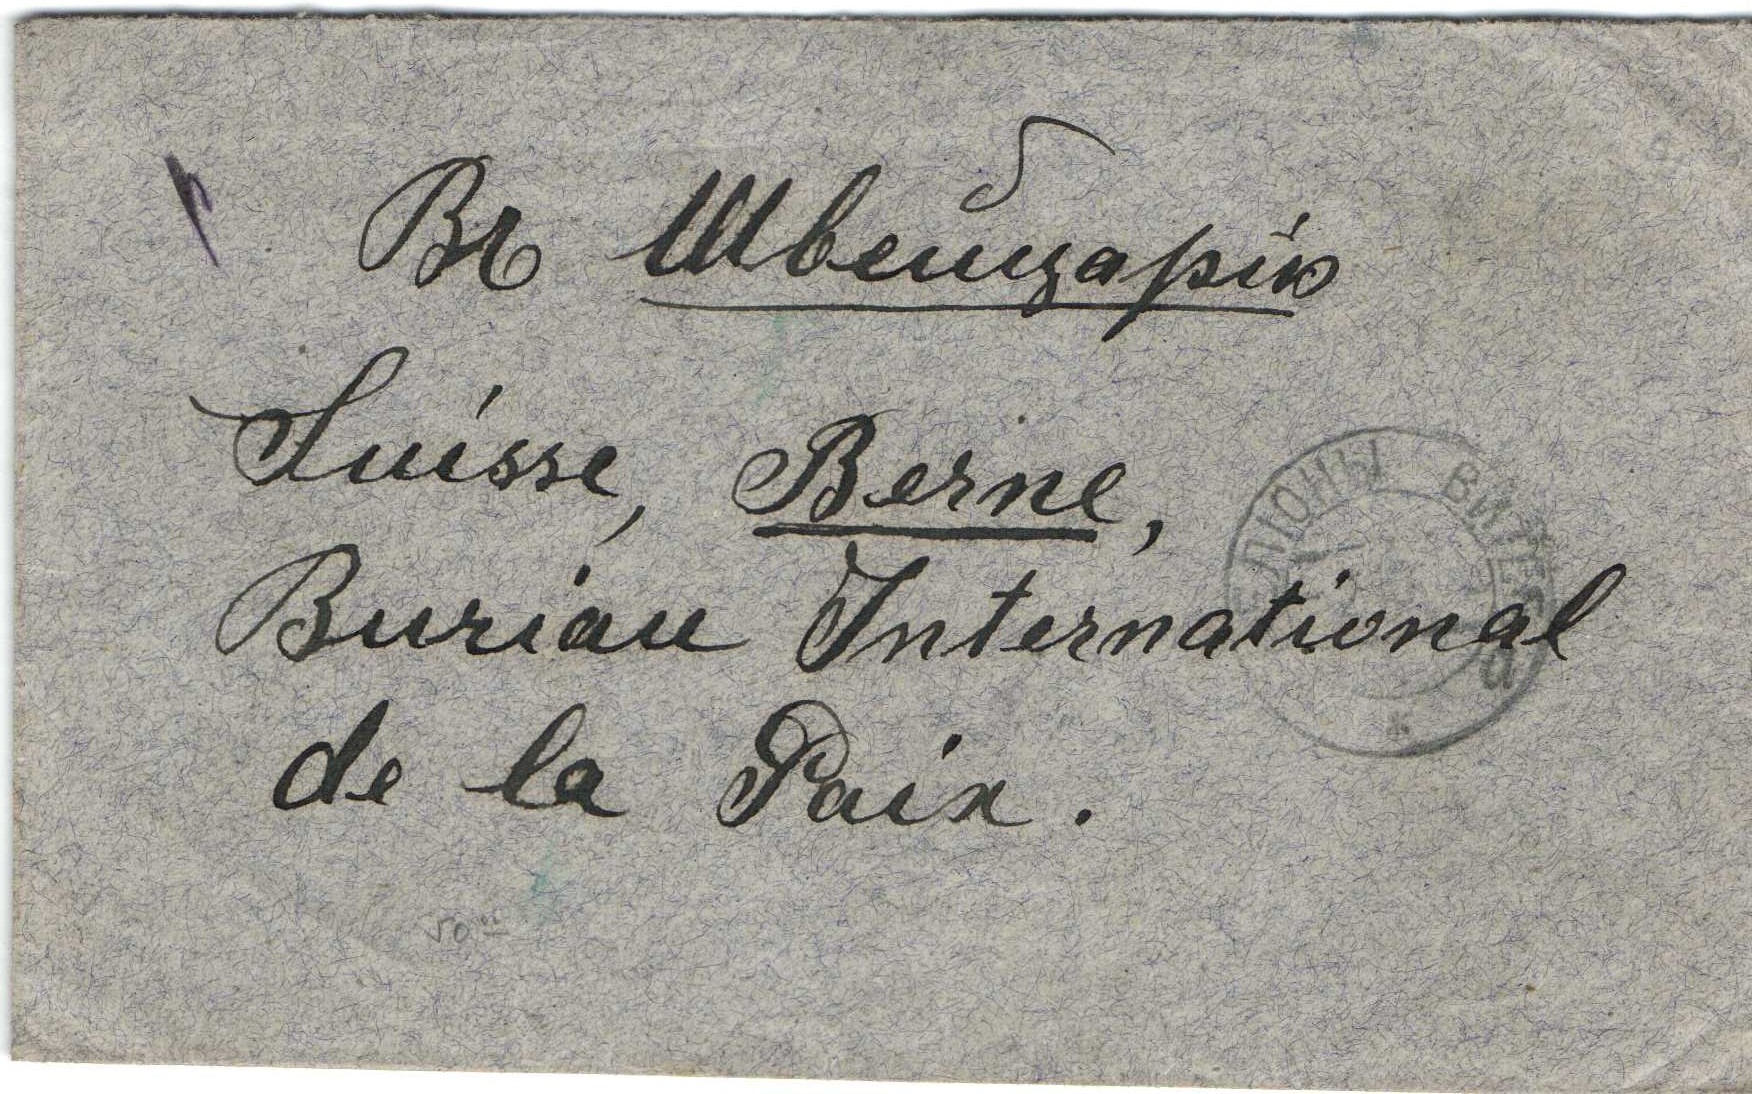 Въ Швейцарію
Suisse, Berne,
Buriau International
de la Paix.
ВИТЕБ